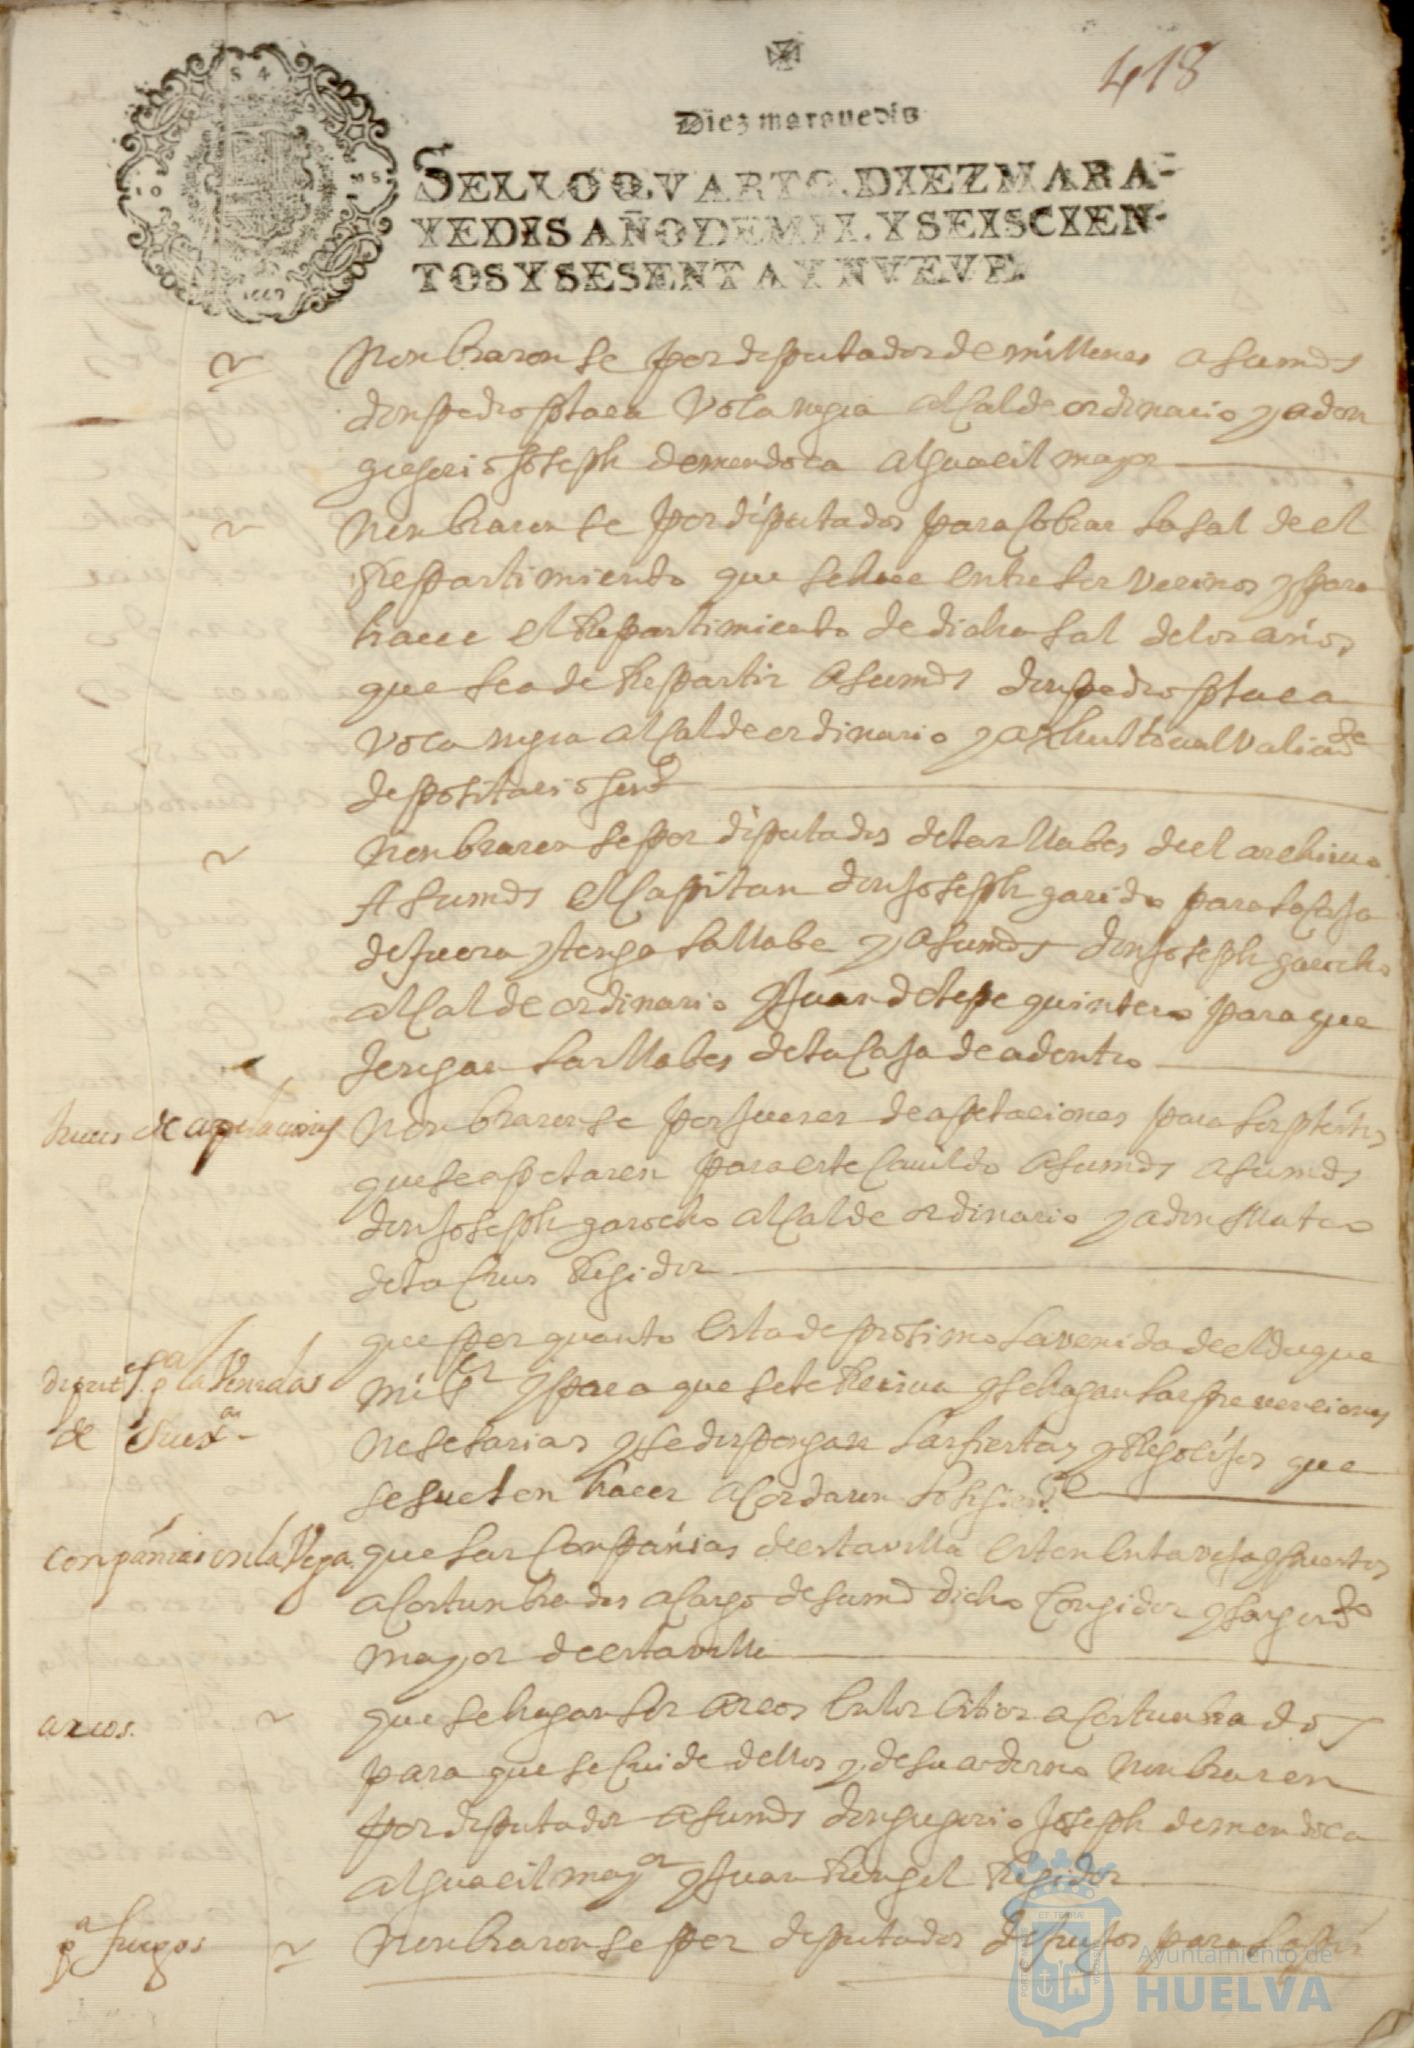 418
Diez maravedis
SELLO QVARTO. DIEZ MARA-
VEDIS AÑO DE MIL Y SEISCIEN-
TOS Y SESENTA Y NVEVE.
Nonbraronse por diputados de millones a sumds
don pedro ... alcalde ordinario y a don
gregorio Joseph de mendoca alguacil mayor
Nonbraronse por diputados para cobrar la sal de el
Repartimiento que se hace entre los vecinos y para
hacer el Repartimiento de dicha sal de los años
que sea de Repartir a sumds don pedro
alcalde ordinario y a
depositario
Nonbraronse por diputados de las llabes de el archivo
A sumds el Capitan don Joseph garido para la Caja
de fuera y tenga la llabe y a sumds don Joseph garocho
alcalde ordinario y Juan de lepe quintero para que
tengan las llabes de la Caja de adentro
Jueces de apelaciones
Nonbraronse por Jueses de apelaciones para los pleitos
que se apelaren para este Cavildo a sumds a sumds
don Joseph garocho alcalde ordinario y a don Mateo
de la Crus Regidor
diput. pa la Venida
de Su exa
que por quanto esta de prosimo la venida de el duque
mi sr y para que se le Reciva y se hagan las prevenciones
nesesarias y se dispongan las fiestas y Regosijos que
se suelen hacer acordaron lo sigiente
Compañias en la Vega
que las Compañias de esta villa esten en la vega y puestos
acostunbrados a cargo de sumd dicho Corregidor y sargento
mayor de esta villa
arcos.
que se hagan los arcos en los citios acostunbrados
para que se cuide dellos y de su adorno nonbraron
por diputados a sumds don gregorio Joseph de mendoca
alguacil mayor y Juan Rengel Regidor
pa fuegos
Nonbraronse por diputados de fuegos para
Ayuntamiento de
HUELVA